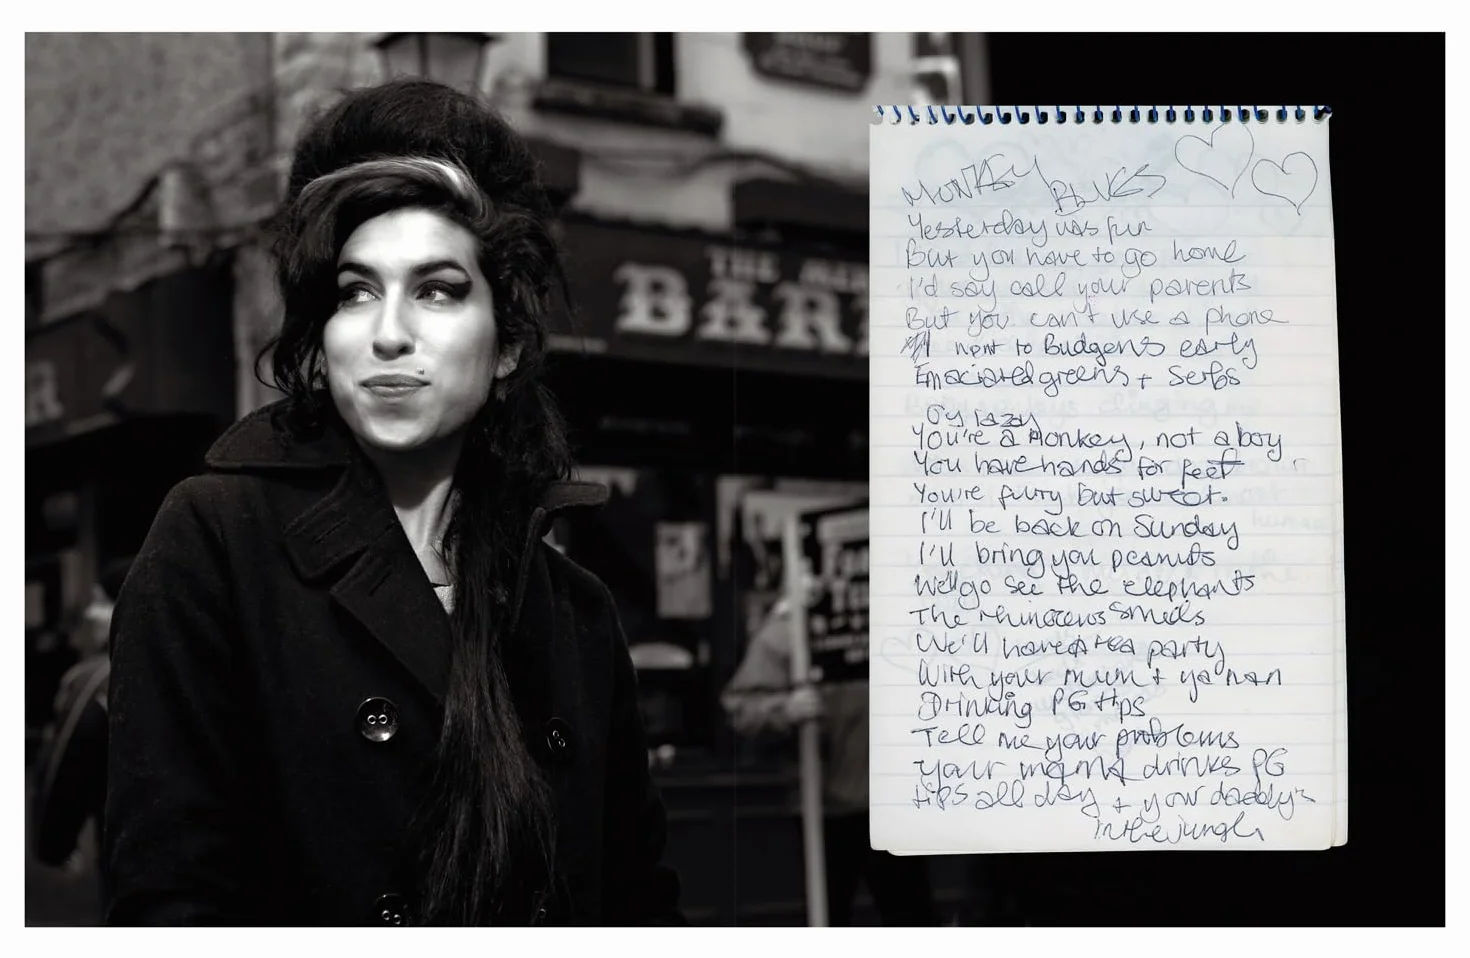 THE
BAR
MONKEY BLUES
Yesterday was fun
But you have to go home
I'd say call your parents
But you can't use a phone
I went to Budgens early
Emaciated greens + Serbs
Oy lazy
You're a Monkey, not a boy
You have hands for feet
You're furry but sweet.
I'll be back on Sunday
I'll bring you peanuts
We'll go see the elephants
The rhinoceros smells
We'll have a tea party
With your mum + ya nan
Drinking PG tips
Tell me your problems
Your mama drinks PG
tips all day + your daddy's
in the jungle